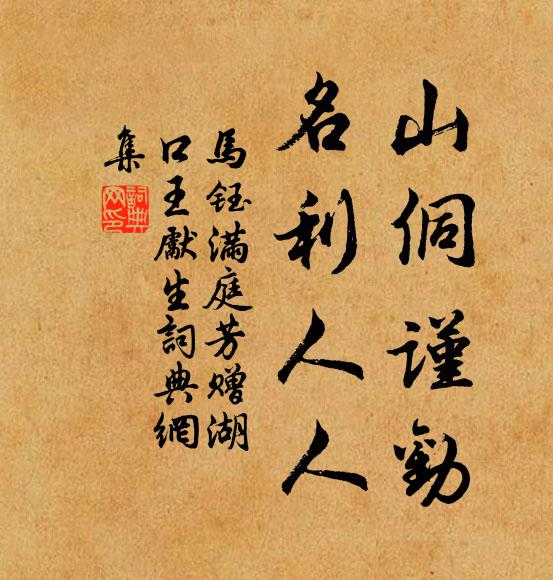 山侗謹勸
名利人人
馬鈺滿庭芳赠湖
口王獻生詞典網
集
詞典网印